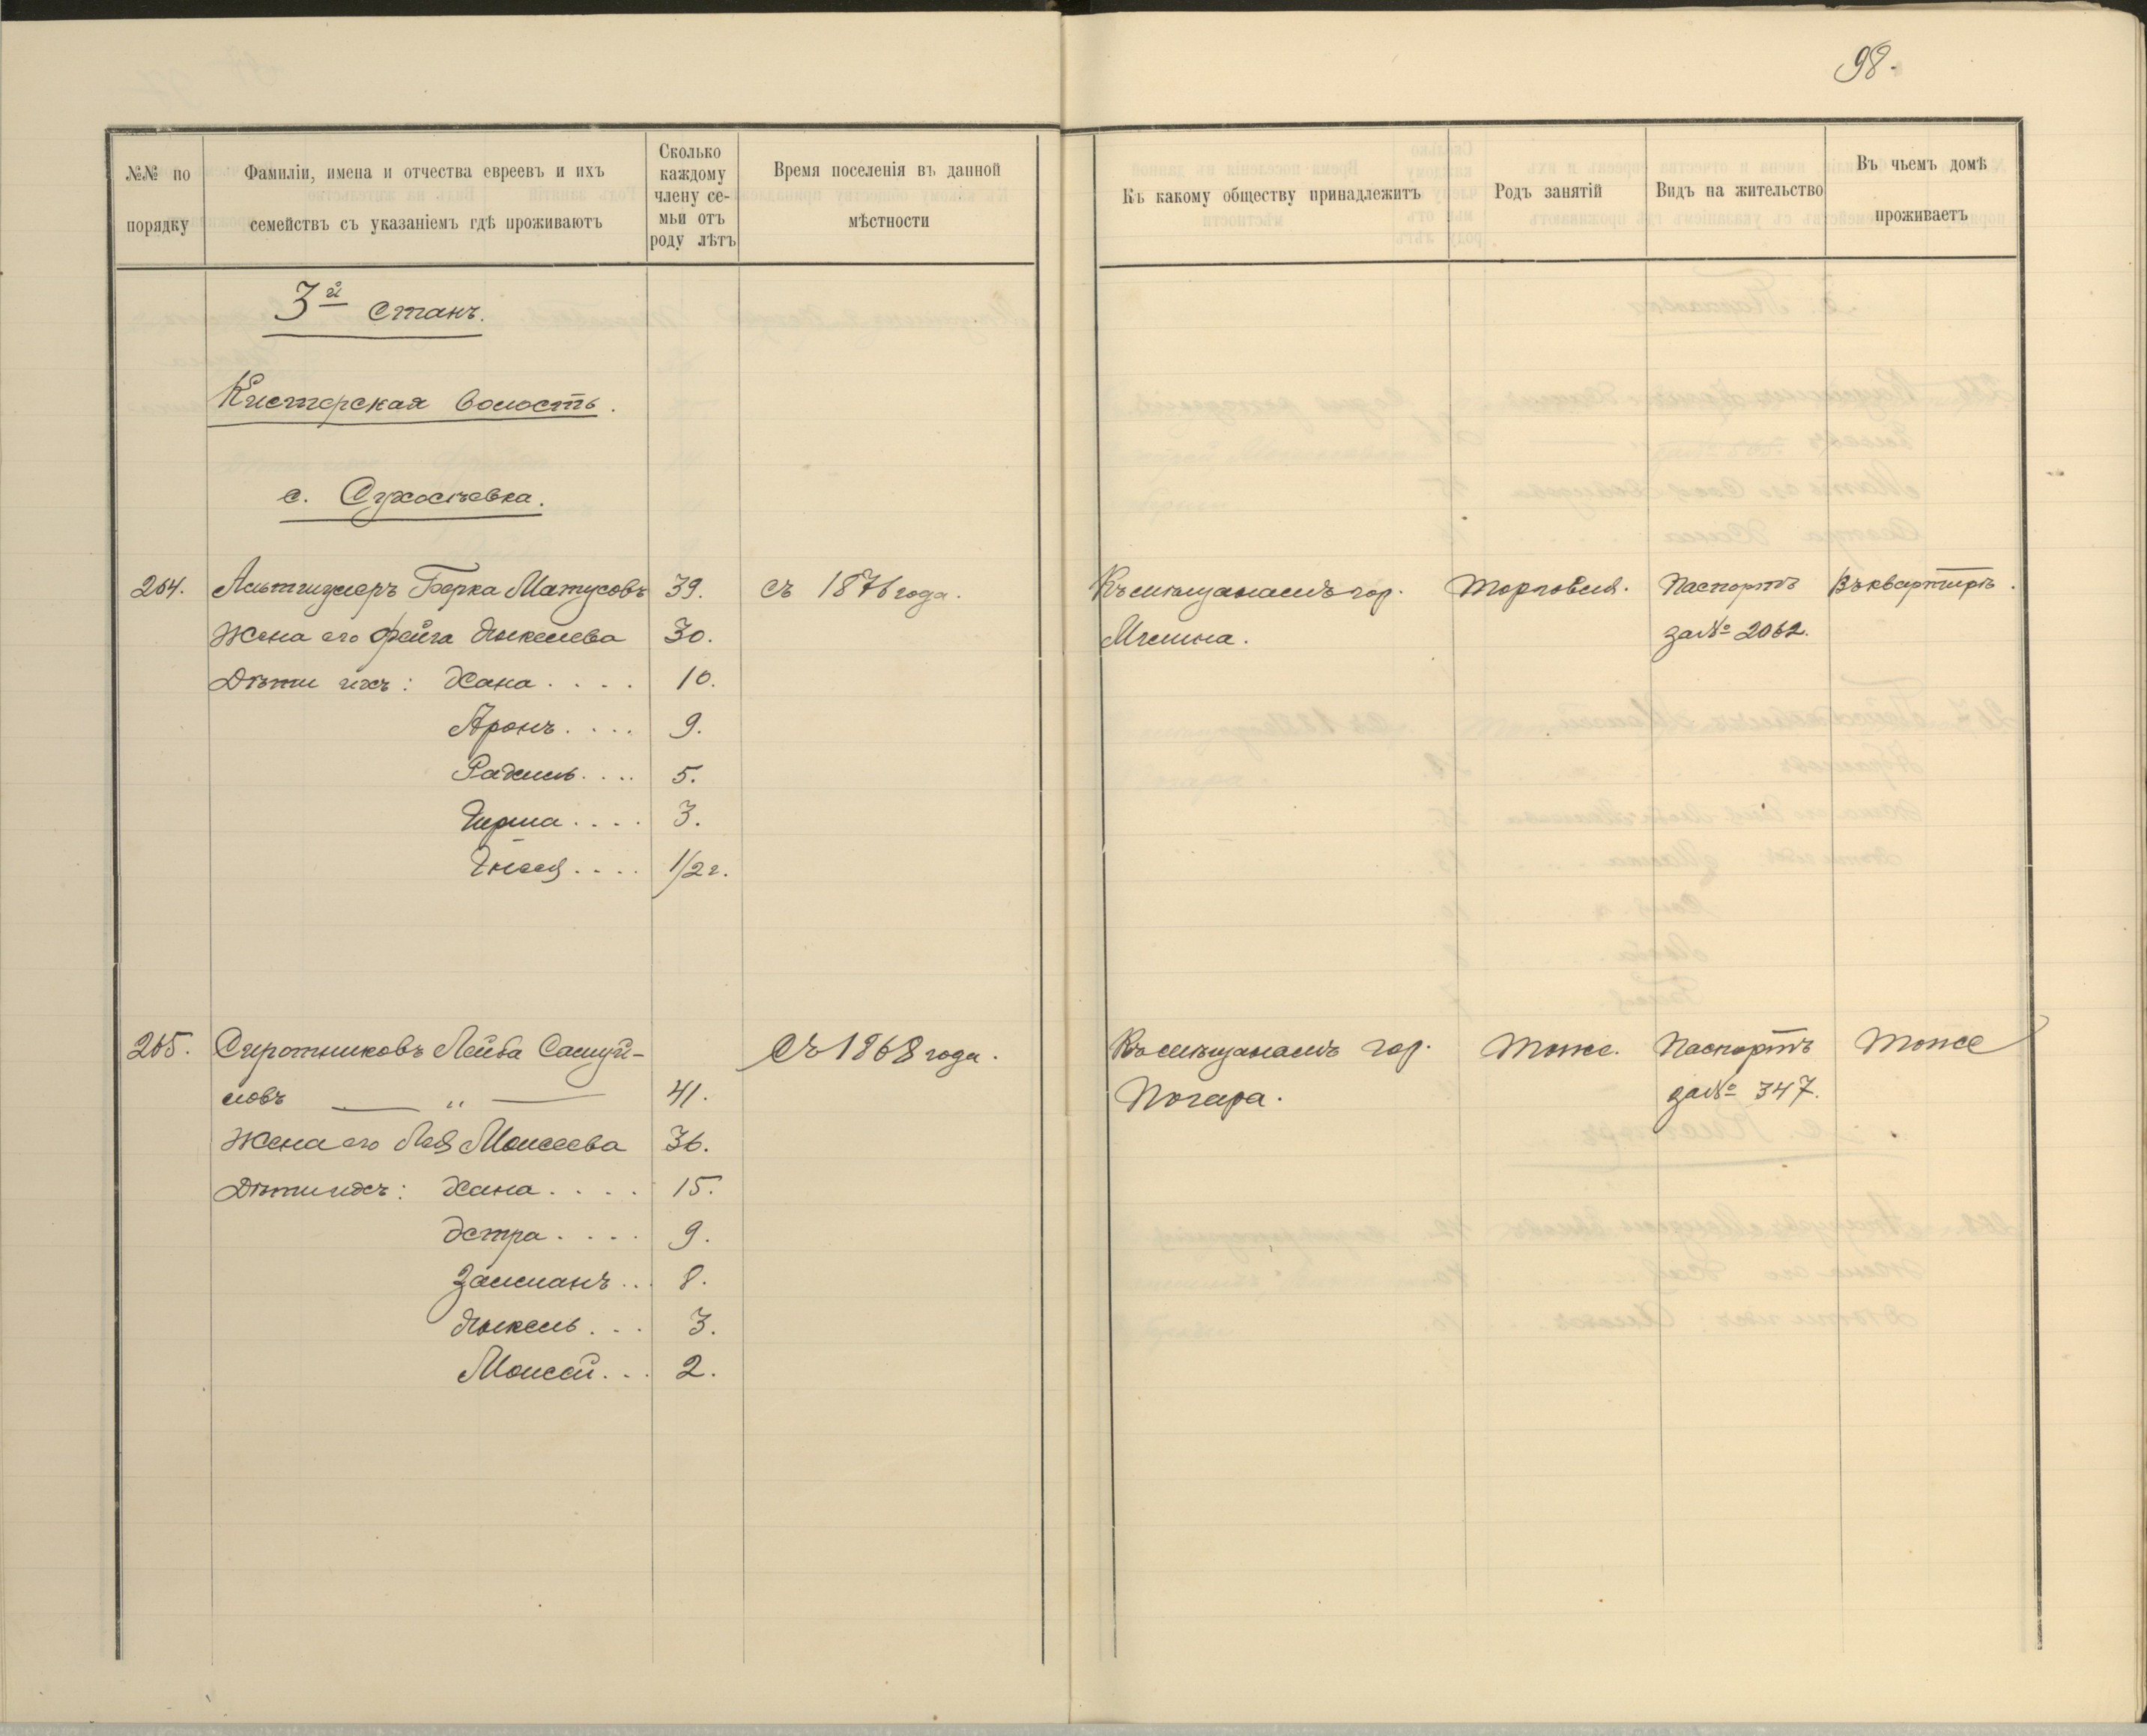 98.
№№ по
порядку
Фамиліи, имена и отчества евреевъ и ихъ
семействъ съ указаніемъ гдѣ проживаютъ
Сколько
каждому
члену се-
мьи отъ
роду лѣтъ
Время поселенія въ данной
мѣстности
Къ какому обществу принадлежитъ
Родъ занятій
Видъ на жительство
Въ чьемъ домѣ
проживаетъ
3й Станъ.
Кистерская волость.
с. Сухосѣевка.
264. Альтшулеръ Берка Матусовъ 39. съ 1876 года. Къ мѣщанамъ гор. Торговля. Паспортъ Въ квартирѣ.
Жена его Фейга Янкелева 30. Мглина. за № 2062.
Дѣти ихъ: Хана.... 10.
Аронъ.... 9.
Рахиль.... 5.
Гирша.... 3.
Гнеся.... 1/2 г.
265. Сиротниковъ Лейба Самуй- Съ 1868 года. Къ мѣщанамъ гор. Тоже. Паспортъ Тоже
ловъ — " — 41. Погара. за № 347.
Жена его Лея Моисеева 36.
Дѣти ихъ: Хана.... 15.
Эстра.... 9.
Залманъ... 8.
Янкель... 3.
Моисей... 2.